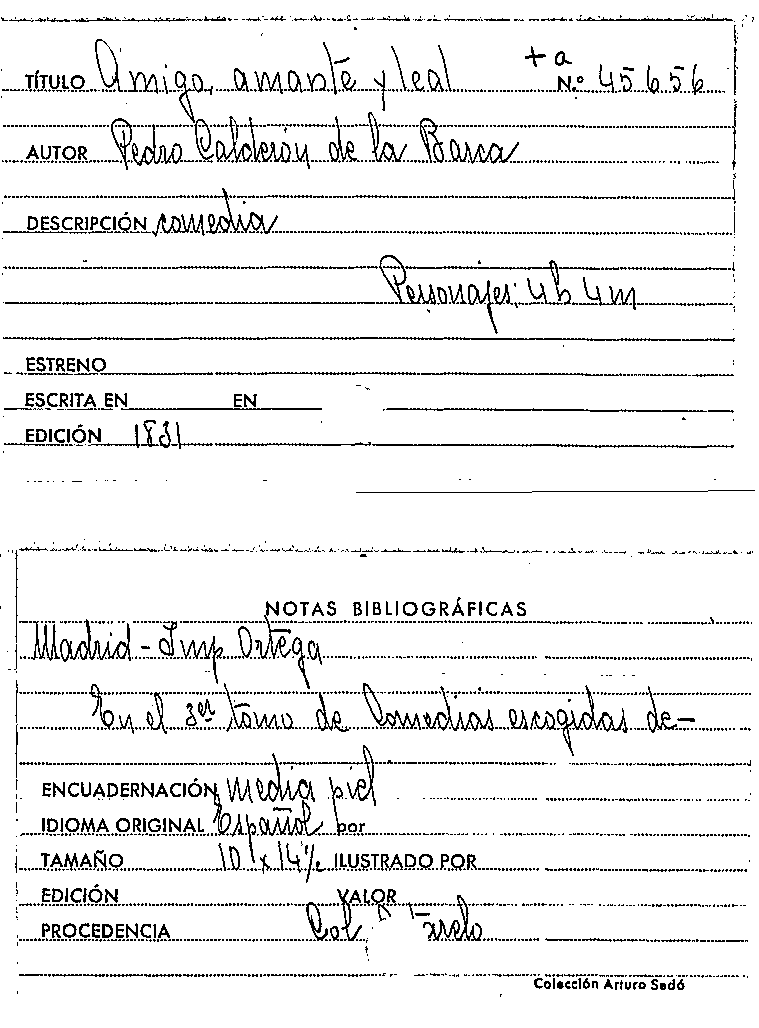 + a
TÍTULO Amigo, amante y leal N.º 45656
AUTOR Pedro Calderón de la Barca
DESCRIPCIÓN comedia
Personajes: 4h 4m
ESTRENO
ESCRITA EN EN
EDICIÓN 1831
NOTAS BIBLIOGRÁFICAS
Madrid - Imp Ortega
En el 3er tomo de Comedias escogidas de-
ENCUADERNACIÓN media piel
IDIOMA ORIGINAL Español por
TAMAÑO ILUSTRADO POR
EDICIÓN VALOR
PROCEDENCIA Col
Colección Arturo Sedó